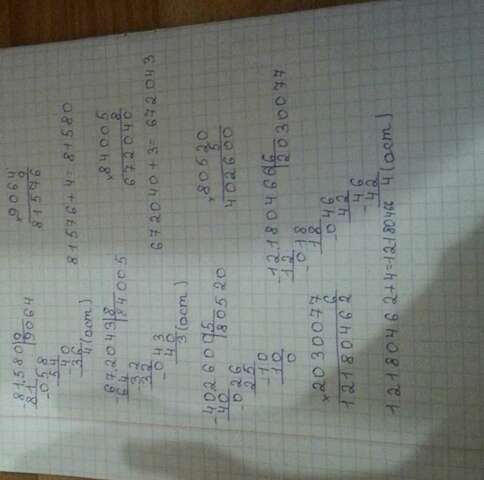 -81580|9
81 |9064
-058
54
-40
36
4(ост)
×9064
9
81576
81576+4=81580
-672043|8
64 |84005
-32
32
-043
40
3(ост)
×84005
8
672040
672040+3=672043
-402600|5
40 |80520
-026
25
-10
10
0
×80520
5
402600
-12180466|6
12 |2030077
-018
18
-046
42
-46
42
4(ост)
×2030077
6
12180462
12180462+4=12180466